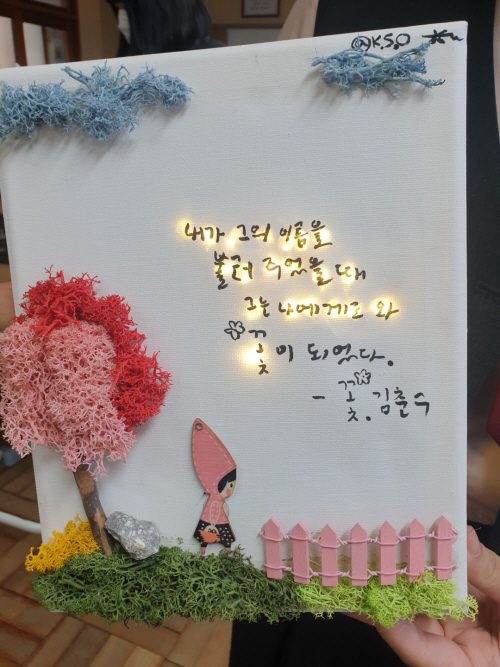 @K.S.O
내가 그의 이름을
불러 주었을 때
그는 나에게로 와
꽃이 되었다.
- 꽃. 김춘수